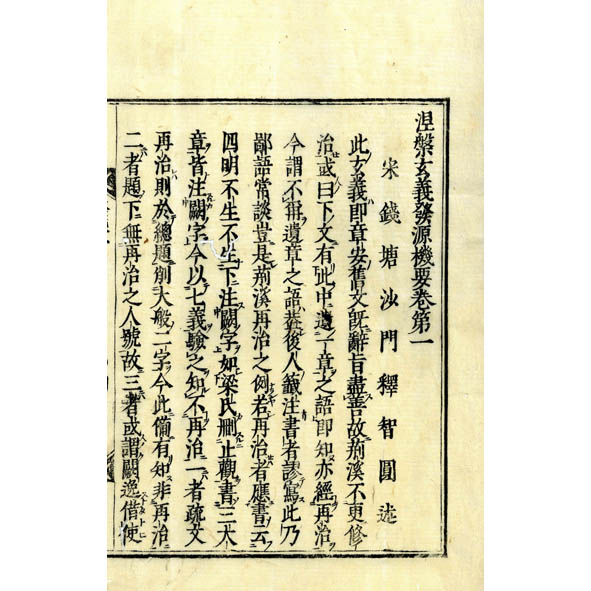 涅槃玄義發源機要卷第一
宋錢塘沙門釋智圓述
此玄義即章安舊文旣辭旨盡善故荊溪不更修
治或曰下文有此中遺一章之語即知亦經再治
今謂不再遺章之語葢後人籤注書者謬寫此乃
鄙語常談豈是荊溪再治之例若再治者應書云
四明不生不生下注闕字如梁氏刪止觀書三大
章皆注闕字今以七義驗之知不再治一者疏文
再治則於總題削大般二字今此備有知非再治
二者題下無再治之人號故三者或謂闕逸借使